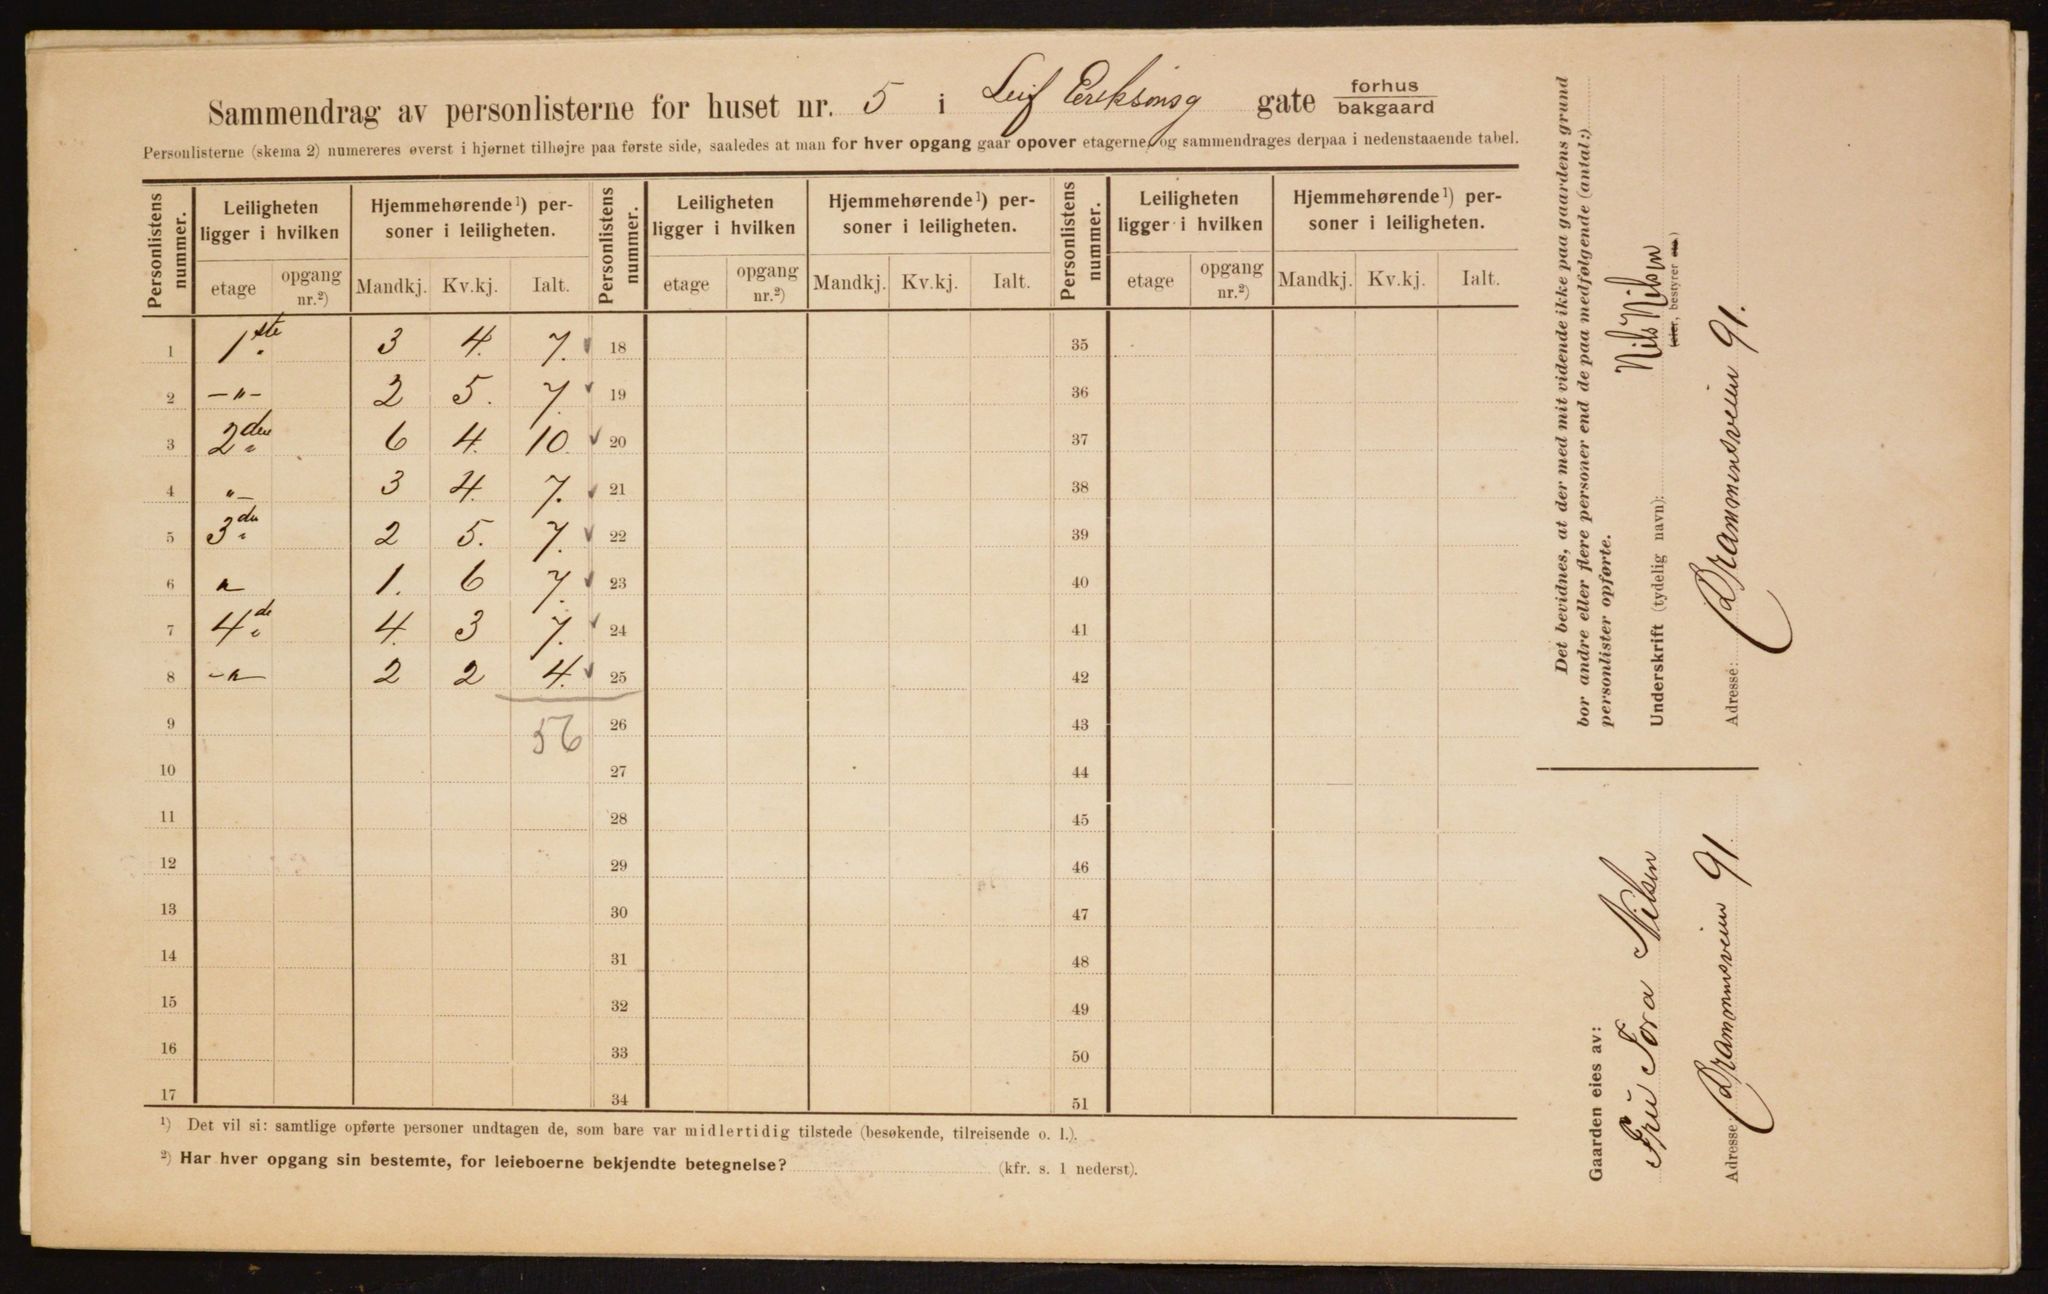 Sammendrag av personlisterne for huset nr. 5 i Leif Eriksønsg gate forhus
bakgaard
Personlisterne (skema 2) numereres øverst i hjørnet tilhøjre paa første side, saaledes at man for hver opgang gaar opover etagerne, og sammendrages derpaa i nedenstaaende tabel.
Personlistens nummer. Leiligheten ligger i hvilken Hjemmehørende¹) personer i leiligheten. Personlistens nummer. Leiligheten ligger i hvilken Hjemmehørende¹) personer i leiligheten. Personlistens nummer. Leiligheten ligger i hvilken Hjemmehørende¹) personer i leiligheten.
etage opgang nr.²) Mandkj. Kv.kj. Ialt. etage opgang nr.²) Mandkj. Kv.kj. Ialt. etage opgang nr.²) Mandkj. Kv.kj. Ialt.
1 1ste 3 4. 7. 18 35
2 –"– 2 5. 7. 19 36
3 2den 6 4. 10. 20 37
4 "– 3 4. 7. 21 38
5 3die 2 5. 7. 22 39
6 " 1. 6 7. 23 40
7 4de 4. 3 7. 24 41
8 –"– 2 2 4. 25 42
9 56 26 43
10 27 44
11 28 45
12 29 46
13 30 47
14 31 48
15 32 49
16 33 50
17 34 51
¹) Det vil si: samtlige opførte personer undtagen de, som bare var midlertidig tilstede (besøkende, tilreisende o. l.).
²) Har hver opgang sin bestemte, for leieboerne bekjendte betegnelse? (kfr. s. 1 nederst).
Det bevidnes, at der med mit vidende ikke paa gaardens grund
bor andre eller flere personer end de paa medfølgende (antal:)
personlister opførte.
Underskrift (tydelig navn): Nils Nilsen
(eier, bestyrer etc.)
Adresse: Drammensveien 91.
Gaarden eies av:
Fru Tora Nilsen
Adresse: Drammensveien 91.